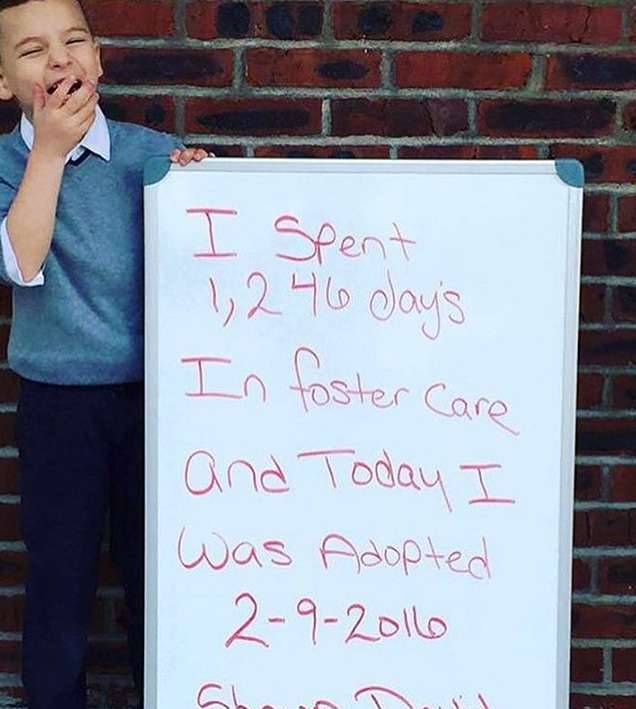 I Spent
1,246 day's
In foster care
and Today I
Was Adopted
2-9-2016